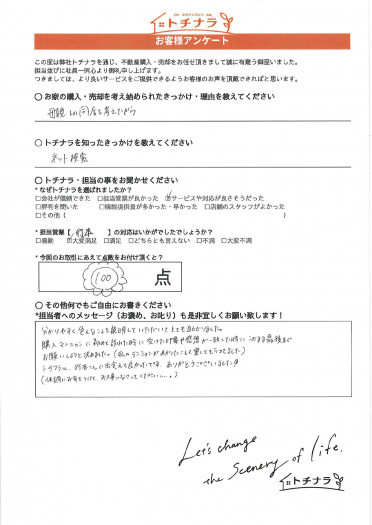 トチナラ
お客様アンケート
この度は弊社トチナラを通じ、不動産購入・売却をお任せ頂きまして誠に有難う御座いました。
担当並びに社員一同心より御礼申し上げます。
つきましては、より良いサービスをご提供できるようお客様のお声を頂戴できればと思います。
〇 お家の購入・売却を考え始められたきっかけ・理由を教えてください
母親との同居を考えてから
〇 トチナラを知ったきっかけを教えてください
ネット検索
〇 トチナラ・担当の事をお聞かせください
* なぜトチナラを選ばれましたか？
□会社が信頼できた □担当営業が良かった ☑サービスや対応が良さそうだった
□評判を聞いた □情報提供量が多かった・早かった □店舗のスタッフがよかった
□その他（ ）
* 担当営業【 】の対応はいかがでしたでしょうか？
□感動 ☑大変満足 □満足 □どちらとも言えない □不満 □大変不満
* 今回のお取引にあえて点数をお付け頂くと？
100 点
〇 その他何でもご自由にお書きください
*担当者へのメッセージ（お褒め、お叱り）も是非宜しくお願い致します！
分かりやすく色んなことを説明していただいてとても助かりました。
購入マンションに初めて訪れた時に受けた印象や感想が一致していた時にこのまま最後まで
お願いしようと決めました。
ありがとうございました
Let's change
the Scenery of life.
トチナラ